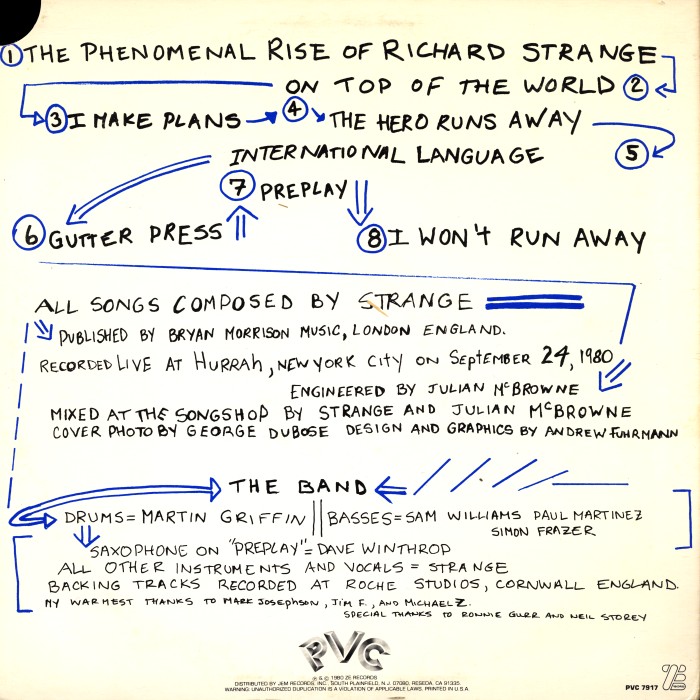 1 THE PHENOMENAL RISE OF RICHARD STRANGE
ON TOP OF THE WORLD 2
3 I MAKE PLANS 4 THE HERO RUNS AWAY
INTERNATIONAL LANGUAGE 5
7 PREPLAY
6 GUTTER PRESS 8 I WON'T RUN AWAY
ALL SONGS COMPOSED BY STRANGE
PUBLISHED BY BRYAN MORRISON MUSIC, LONDON ENGLAND.
RECORDED LIVE AT HURRAH, NEW YORK CITY ON SEPTEMBER 24, 1980
ENGINEERED BY JULIAN McBROWNE
MIXED AT THE SONGSHOP BY STRANGE AND JULIAN McBROWNE
COVER PHOTO BY GEORGE DUBOSE DESIGN AND GRAPHICS BY ANDREW FUHRMANN
THE BAND
DRUMS = MARTIN GRIFFIN || BASSES = SAM WILLIAMS PAUL MARTINEZ
SIMON FRAZER
SAXOPHONE ON "PREPLAY" = DAVE WINTHROP
ALL OTHER INSTRUMENTS AND VOCALS = STRANGE
BACKING TRACKS RECORDED AT ROCHE STUDIOS, CORNWALL ENGLAND.
MY WARMEST THANKS TO MARK JOSEPHSON, JIM F., AND MICHAEL Z.
SPECIAL THANKS TO RONNIE GURR AND NEIL STOREY
PVC
℗ & © 1980 ZE RECORDS
DISTRIBUTED BY JEM RECORDS, INC. SOUTH PLAINFIELD, N.J. 07080, RESEDA, CA 91335.
WARNING: UNAUTHORIZED DUPLICATION IS A VIOLATION OF APPLICABLE LAWS. PRINTED IN U.S.A.
PVC 7917 ZE